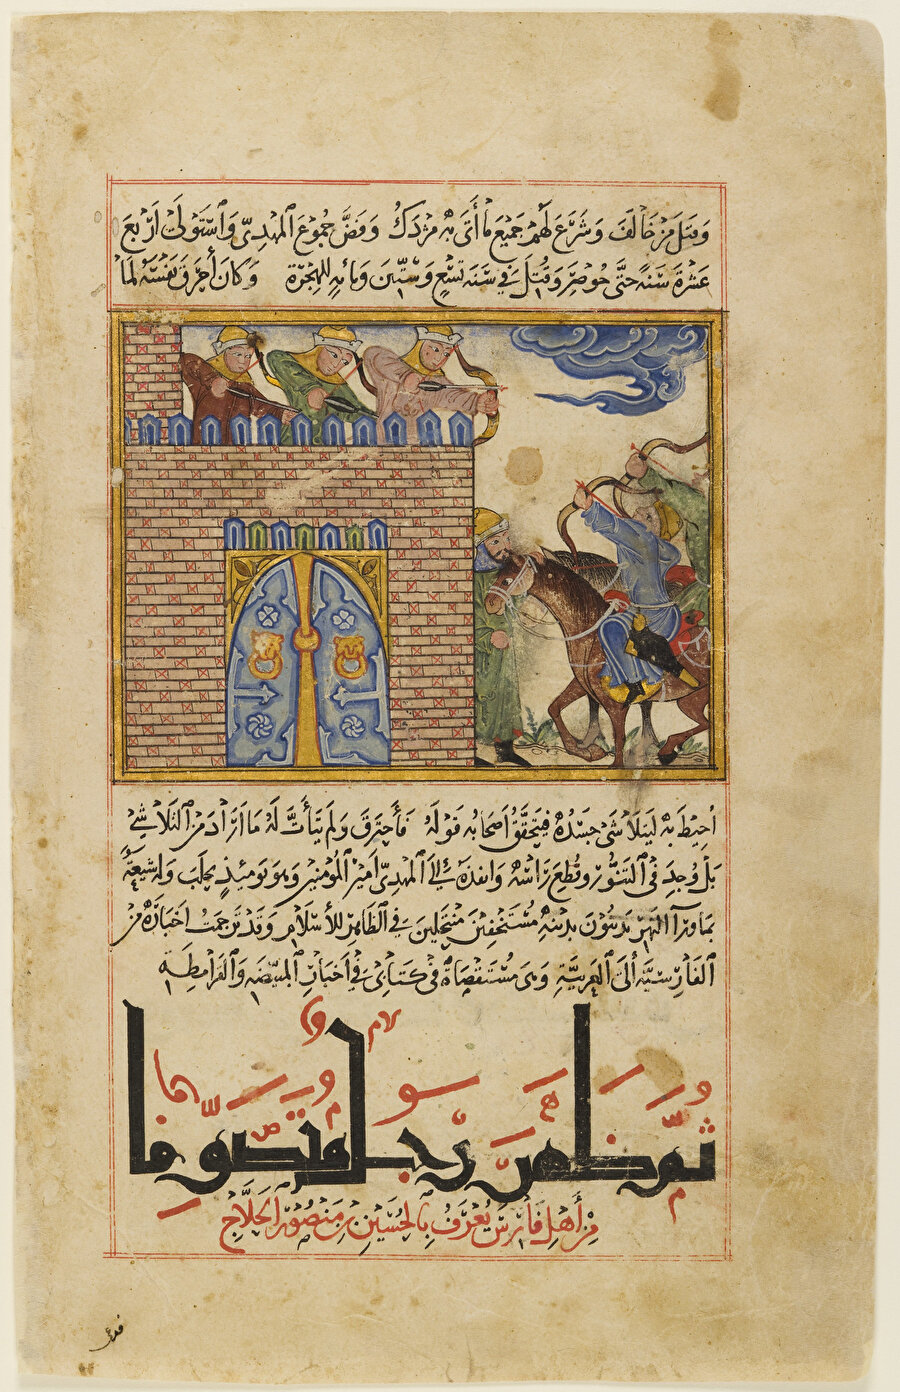 وقتل من خالف وشرع لهم جميع ما أتى به مزدك وفض جموع المهدي واستولت أربع
عشرة سنة حتى حوصر وقتل في سنة تسع وستين ومائة للهجرة وكان أحرق نفسه لما
أحيط به ليتلاشى جسده فيتحقق أصحابه قوله فأحترق ولم يتأت له ما أراد من التلاشي
بل وجد في التنور وقطع رأسه وانفذه إلى المهدي أمير المؤمنين وهو يومئذ بحلب وله شيعة
بماورآ النهر يدينون بدينه مستخفين منتحلين في الظاهر للأسلام وقد ترجمت اخباره من
الفارسية ألى العربية وهي مستقصاة في كتابي في أخبار المبيضة والقرامطة
ثم ظهر رجل متصوف
من أهل فارس يعرف بالحسين بن منصور الحلاج